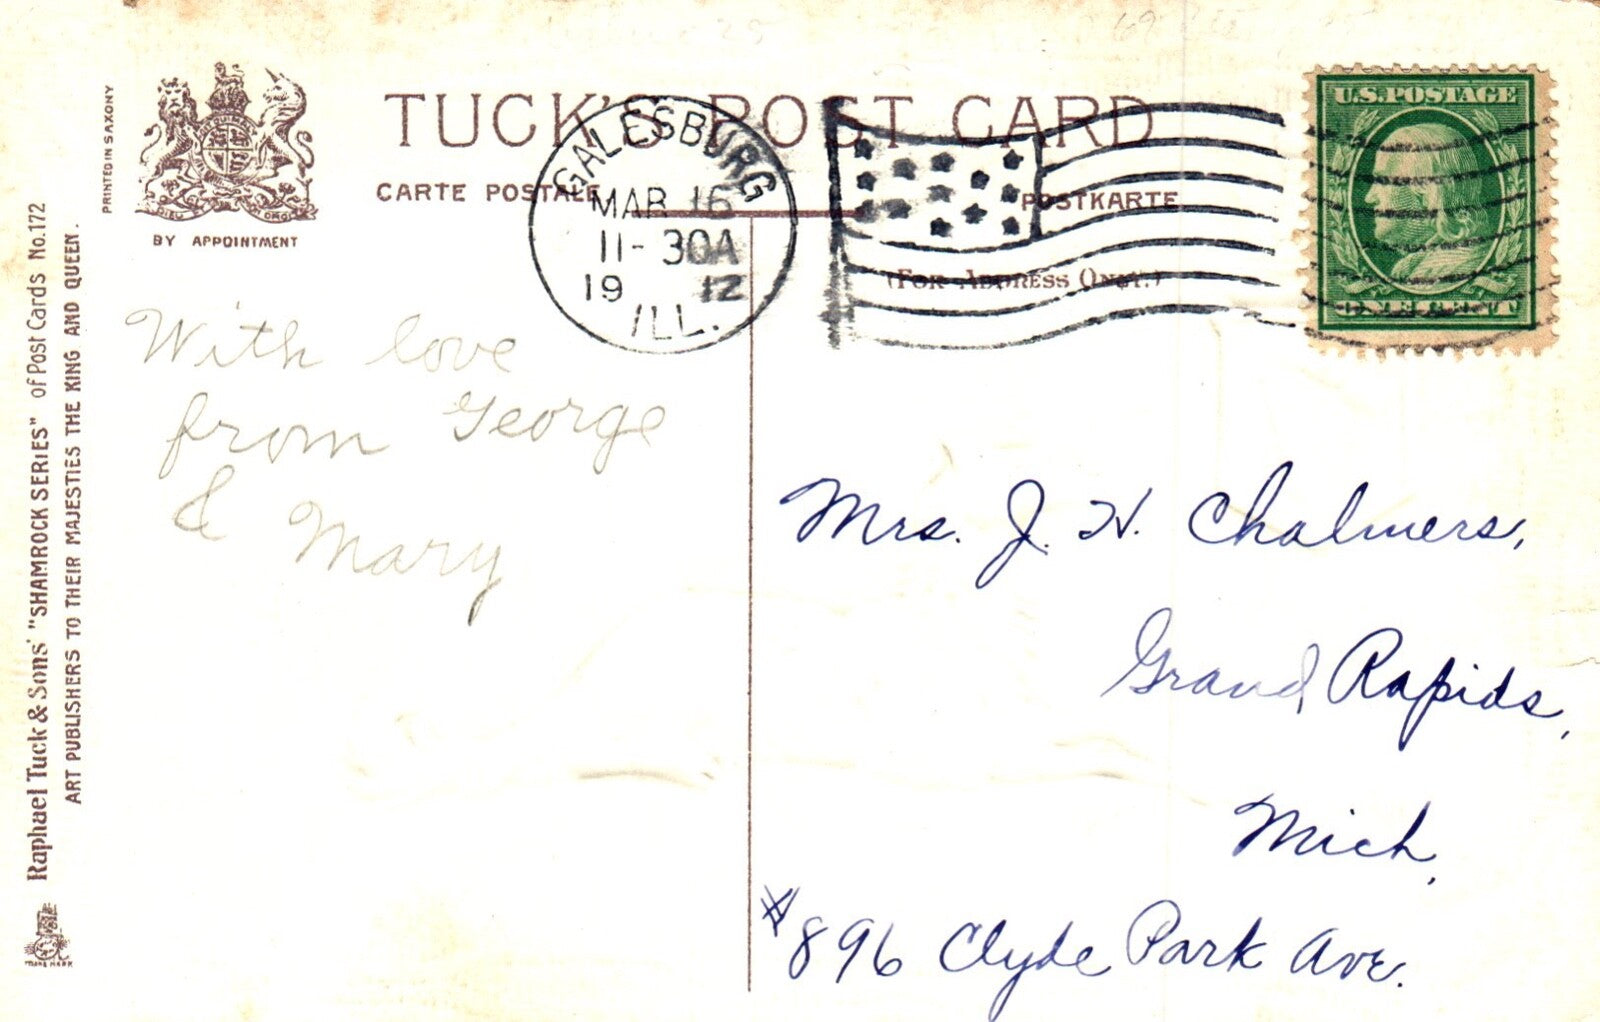 TUCK'S POST CARD
CARTE POSTALE
POSTKARTE
(FOR ADDRESS ONLY.)
PRINTED IN SAXONY
BY APPOINTMENT
Raphael Tuck & Sons' "SHAMROCK SERIES" of Post Cards No. 172
ART PUBLISHERS TO THEIR MAJESTIES THE KING AND QUEEN.
TRADE MARK
GALESBURG
MAR 16
11-30A
19 12
ILL.
U.S. POSTAGE
ONE CENT
With love
from George
& Mary
Mrs. J. H. Chalmers,
Grand Rapids,
Mich.
#896 Clyde Park Ave.